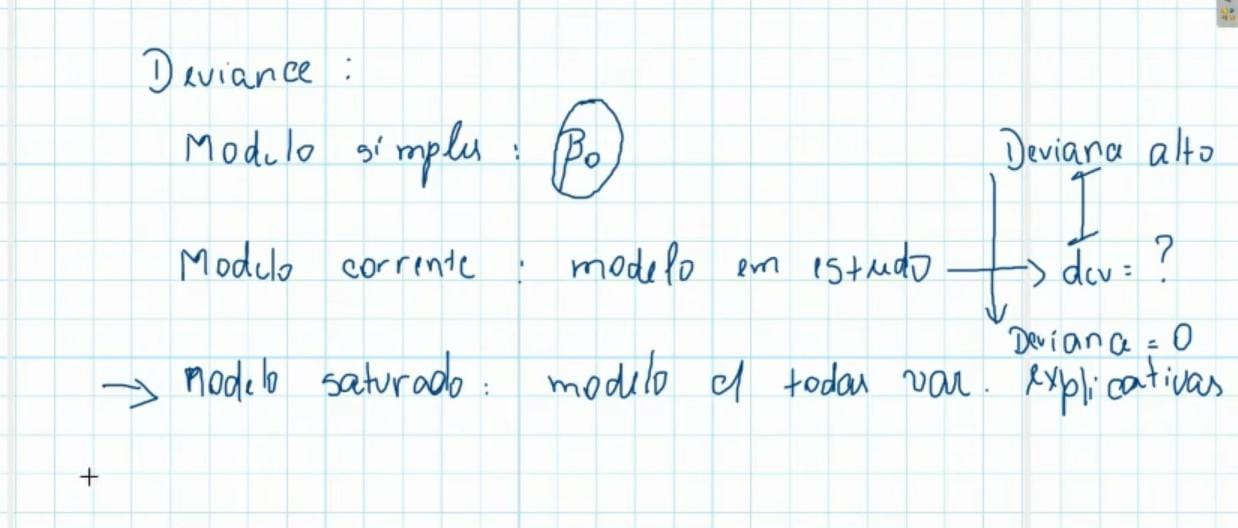 Deviance :
Modelo simples : β₀ Deviance alto
Modelo corrente : modelo em estudo → dev = ?
Deviance = 0
→ Modelo saturado : modelo c/ todas var. explicativas